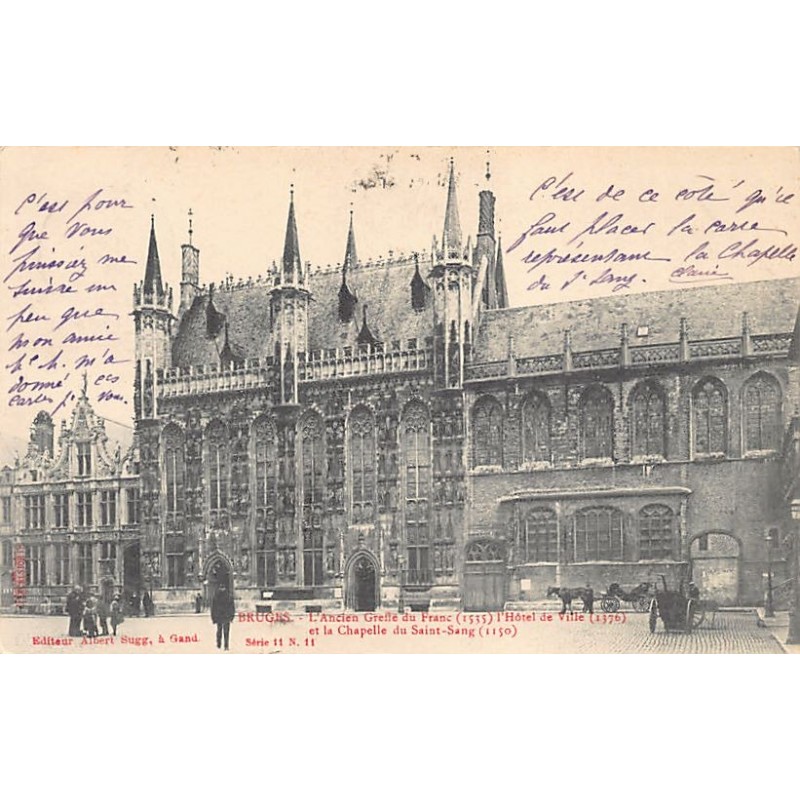 C'est pour
que vous
puissiez me
suivre un
peu que
mon amie
m'a
donné ces
cartes p.
vous.
C'est de ce côté qu'il
faut placer la carte
représentant la Chapelle
du St Sang.
BRUGES. - L'Ancien Greffe du Franc (1535) l'Hôtel de Ville (1376)
et la Chapelle du Saint-Sang (1150)
Editeur Albert Sugg, à Gand. Série 11 N. 11